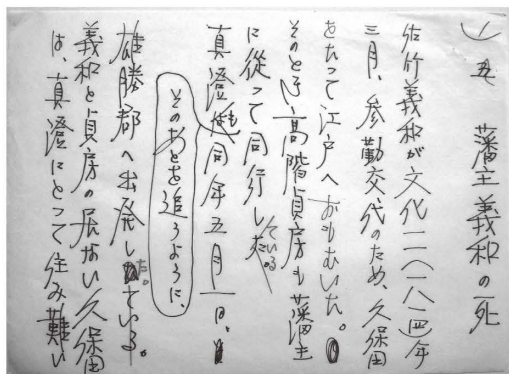 五　藩主義和の死
佐竹義和が文化一一(一八一四)年
三月、参勤交代のため、久保田
をたって江戸へおもむいた。
そのとき、高階貞房も藩主
に従って同行している
真澄も同年五月一日、
そのあとを追うように、
雄勝郡へ出発した。
義和と貞房の居ない久保田
は、真澄にとって住み難い